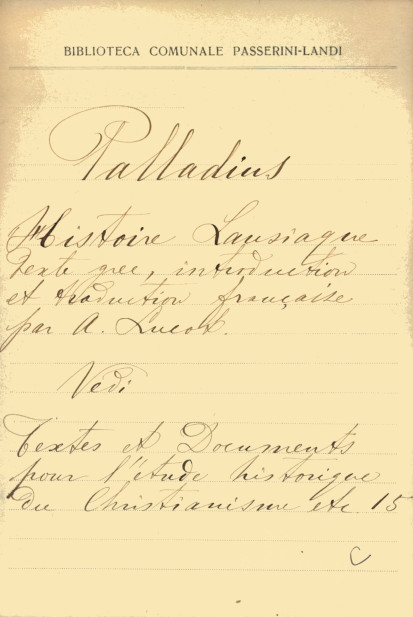 BIBLIOTECA COMUNALE PASSERINI-LANDI
Palladius
Histoire Lausiaque
Texte grec, introduction
et traduction française
par A. Lucot.
Vedi
Textes et Documents
pour l'étude historique
du Christianisme etc. 15
C